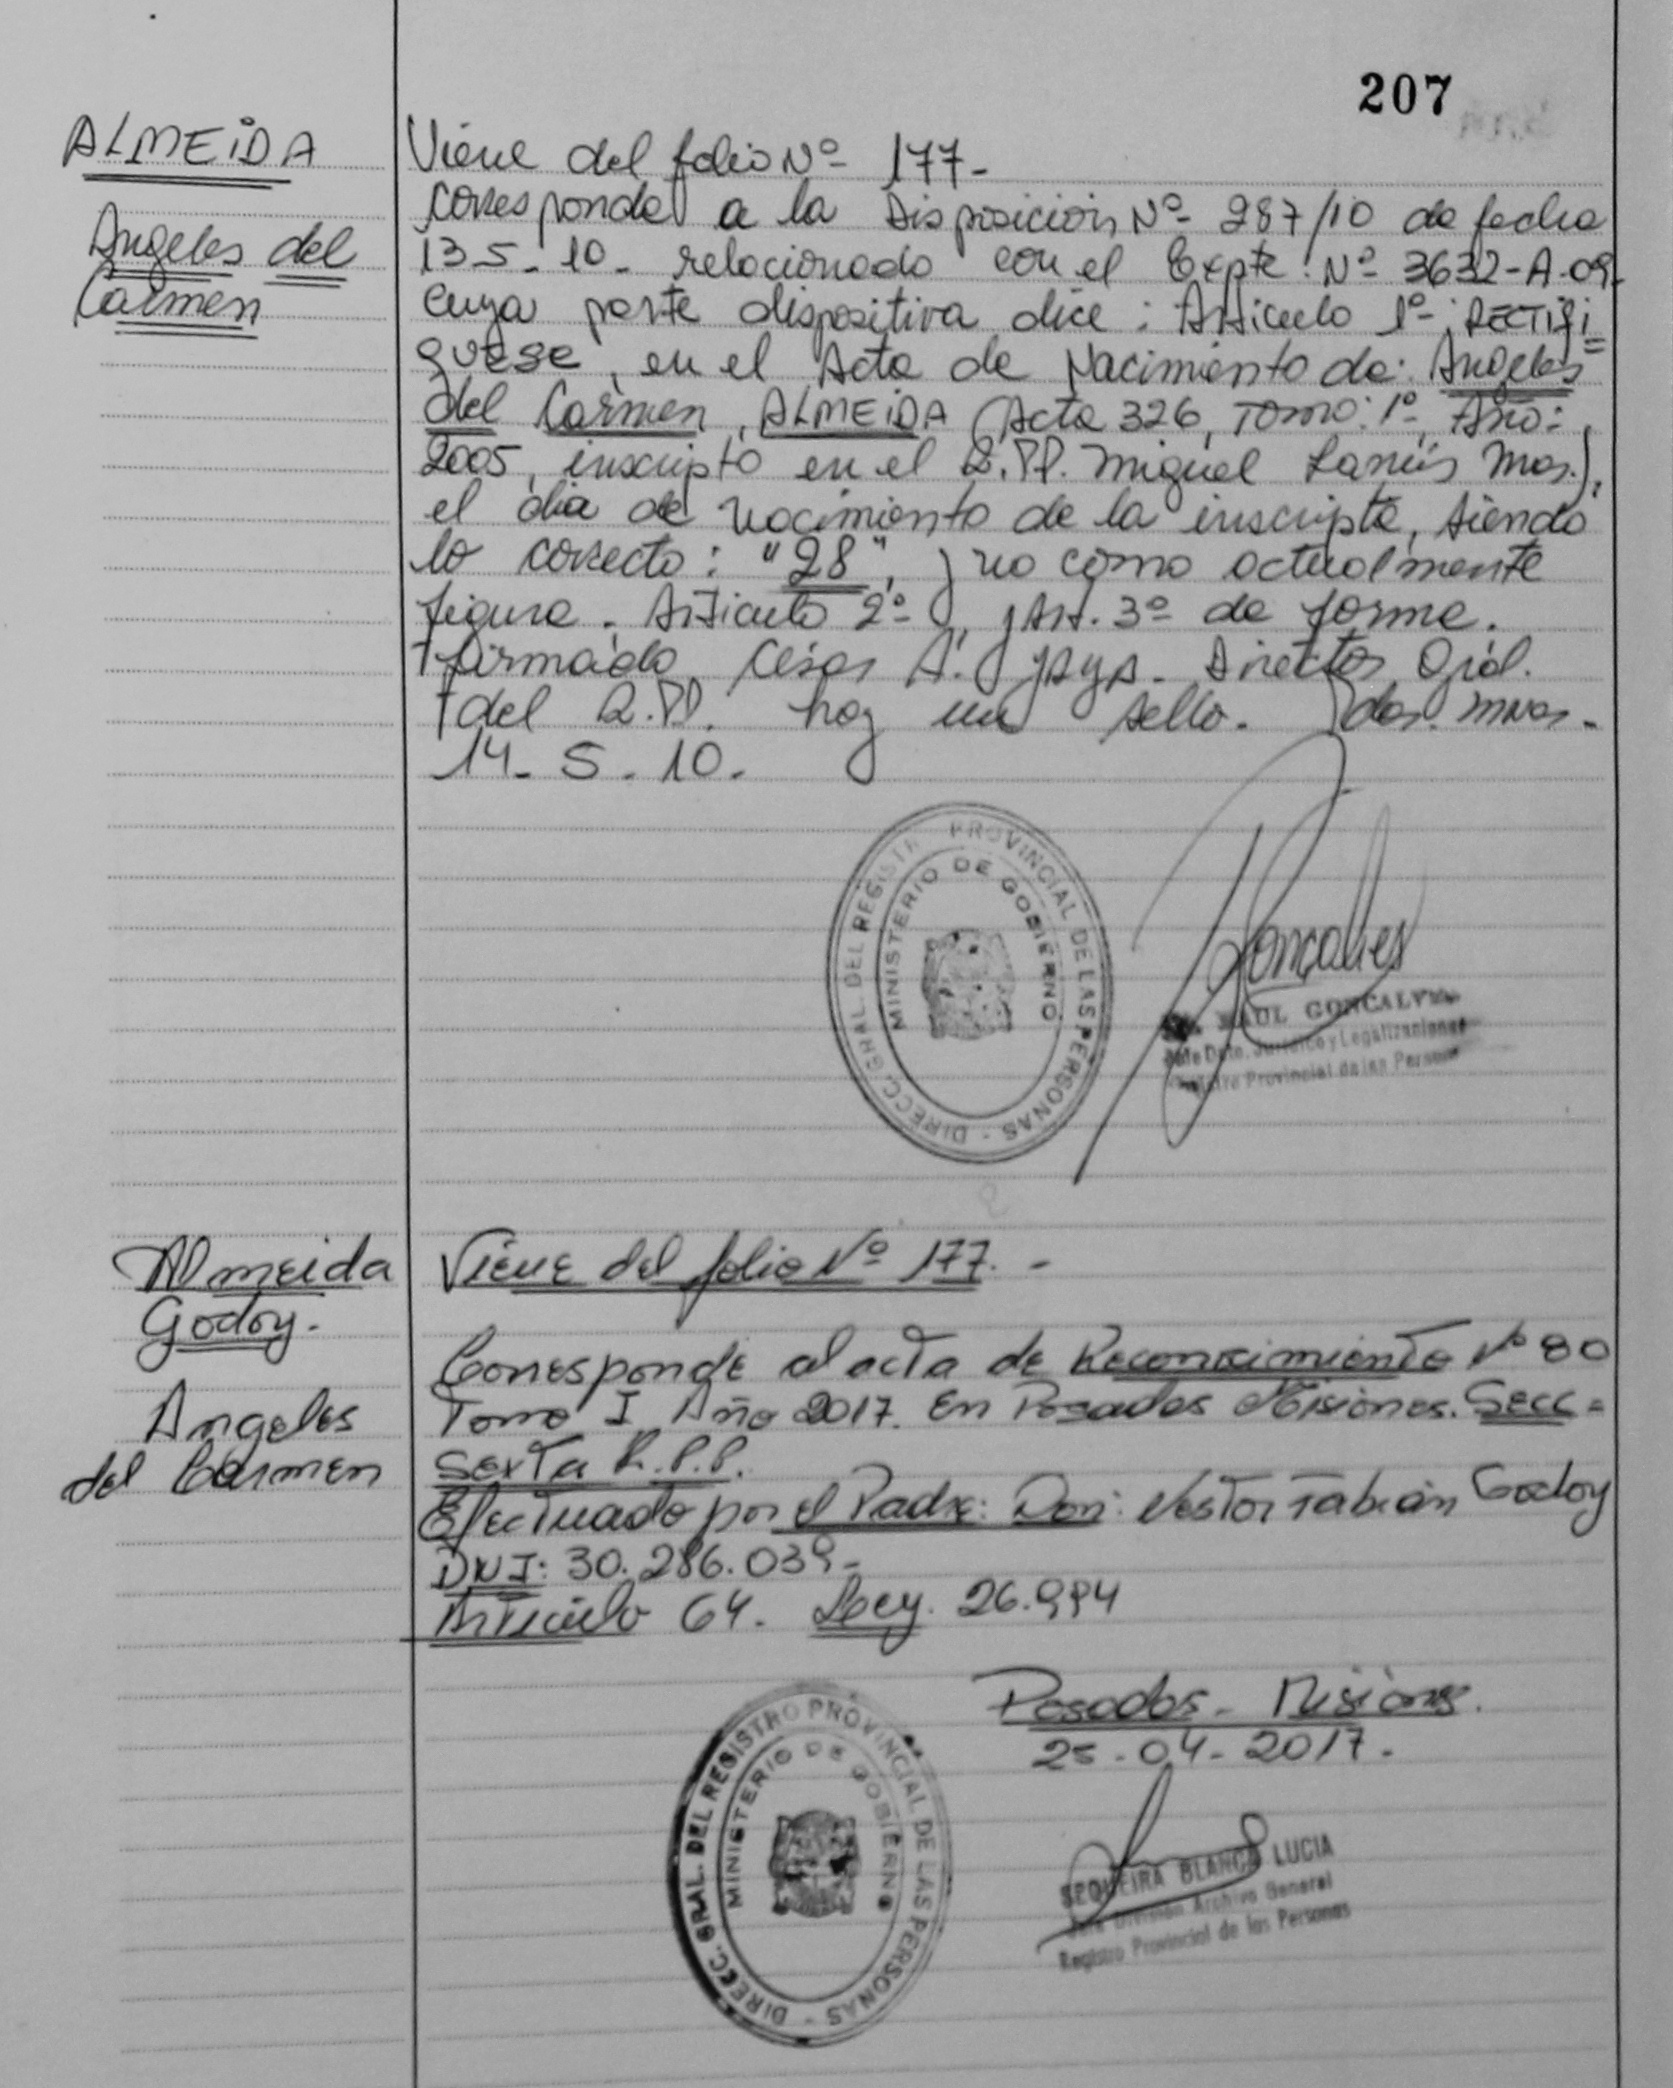 207
ALMEIDA
Angeles del
Carmen
Viene del folio Nº 177-
Corresponde a la Disposición Nº 287/10 de fecha
13-5-10- relacionado con el Expte. Nº 3632-A-09-
cuya parte dispositiva dice: Articulo 1º: RECTIFI=
QUESE, en el Acta de Nacimiento de: Angeles
del Carmen, ALMEIDA (Acta 326, Tomo: 1º, Año:
2005, inscripto en el R.PP. Miguel Lanús Mnes.),
el día de nacimiento de la inscripta, siendo
lo correcto: "28", y no como actualmente
figura. Articulo 2º y Art. 3º de forma.
Firmado César A. Director Gral.
del R.PP. hay un sello. Pdas. Mnes.
14-5-10.
DIRECC. GRAL. DEL REGISTRO PROVINCIAL DE LAS PERSONAS -
MINISTERIO DE GOBIERNO
Gonçalves
RAUL GONCALVES
Jefe Dpto. Jurídico y Legalizaciones
Registro Provincial de las Personas
Almeida
Godoy.
Angeles
del Carmen
Viene del folio Nº 177.-
Corresponde al acta de Reconocimiento Nº 80
Tomo I Año 2017. En Posadas Misiones. Secc=
Sexta R.P.P.
Efectuado por el Padre: Don: Nestor Fabián Godoy
DNI: 30.286.039-
Articulo 64. Ley. 26.994
Posadas- Misiones.
25-04-2017.
DIRECC. GRAL. DEL REGISTRO PROVINCIAL DE LAS PERSONAS -
MINISTERIO DE GOBIERNO
SEQUEIRA BLANCA LUCIA
Jefe División Archivo General
Registro Provincial de las Personas